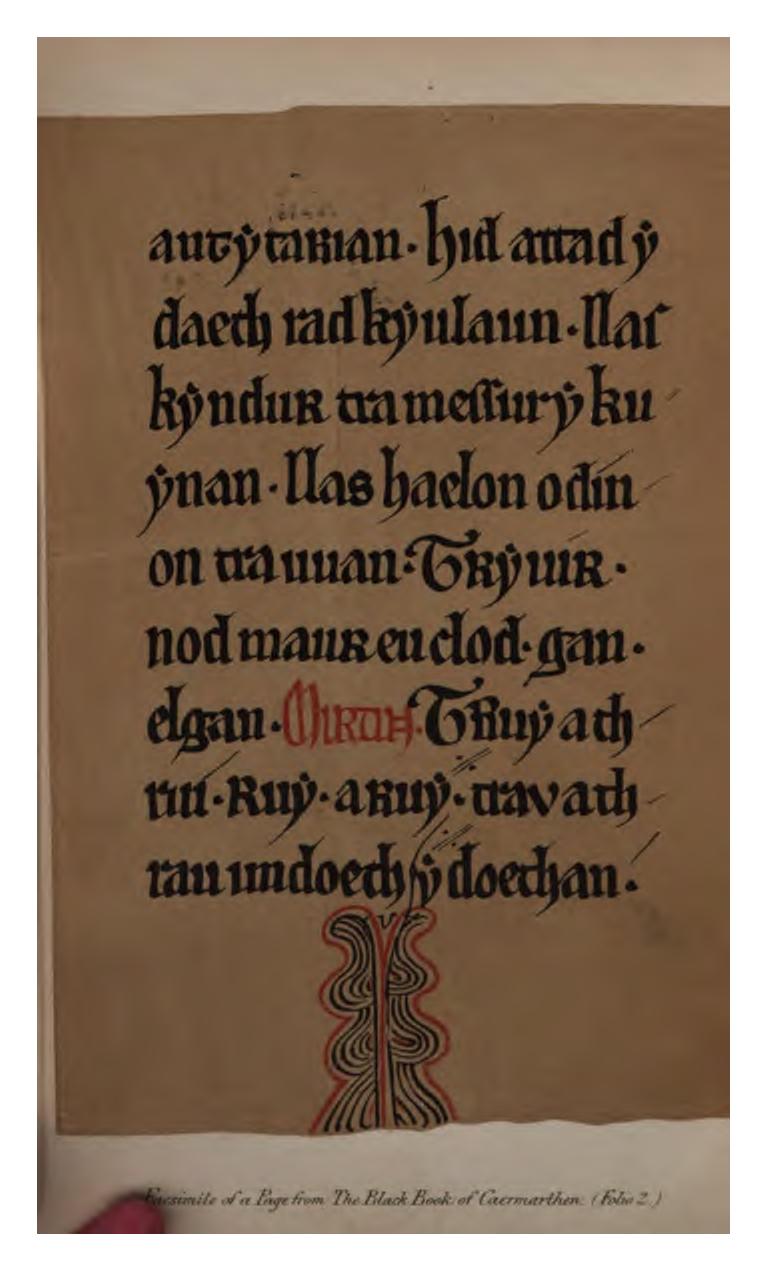 autẏtarian· hid attad ẏ
daeth rad kẏulaun· llas
kẏndur tra messurẏ ku
ẏnan· llas haelon o din
on tra uuan: Trẏuir·
nod maur eu clod· gan·
elgan· MIRTIH· Truẏ ath
rui· Ruẏ· a Ruẏ· trav ath
rau imdoeth ẏ doethan·
Facsimile of a Page from The Black Book of Caermarthen. (Folio 2.)